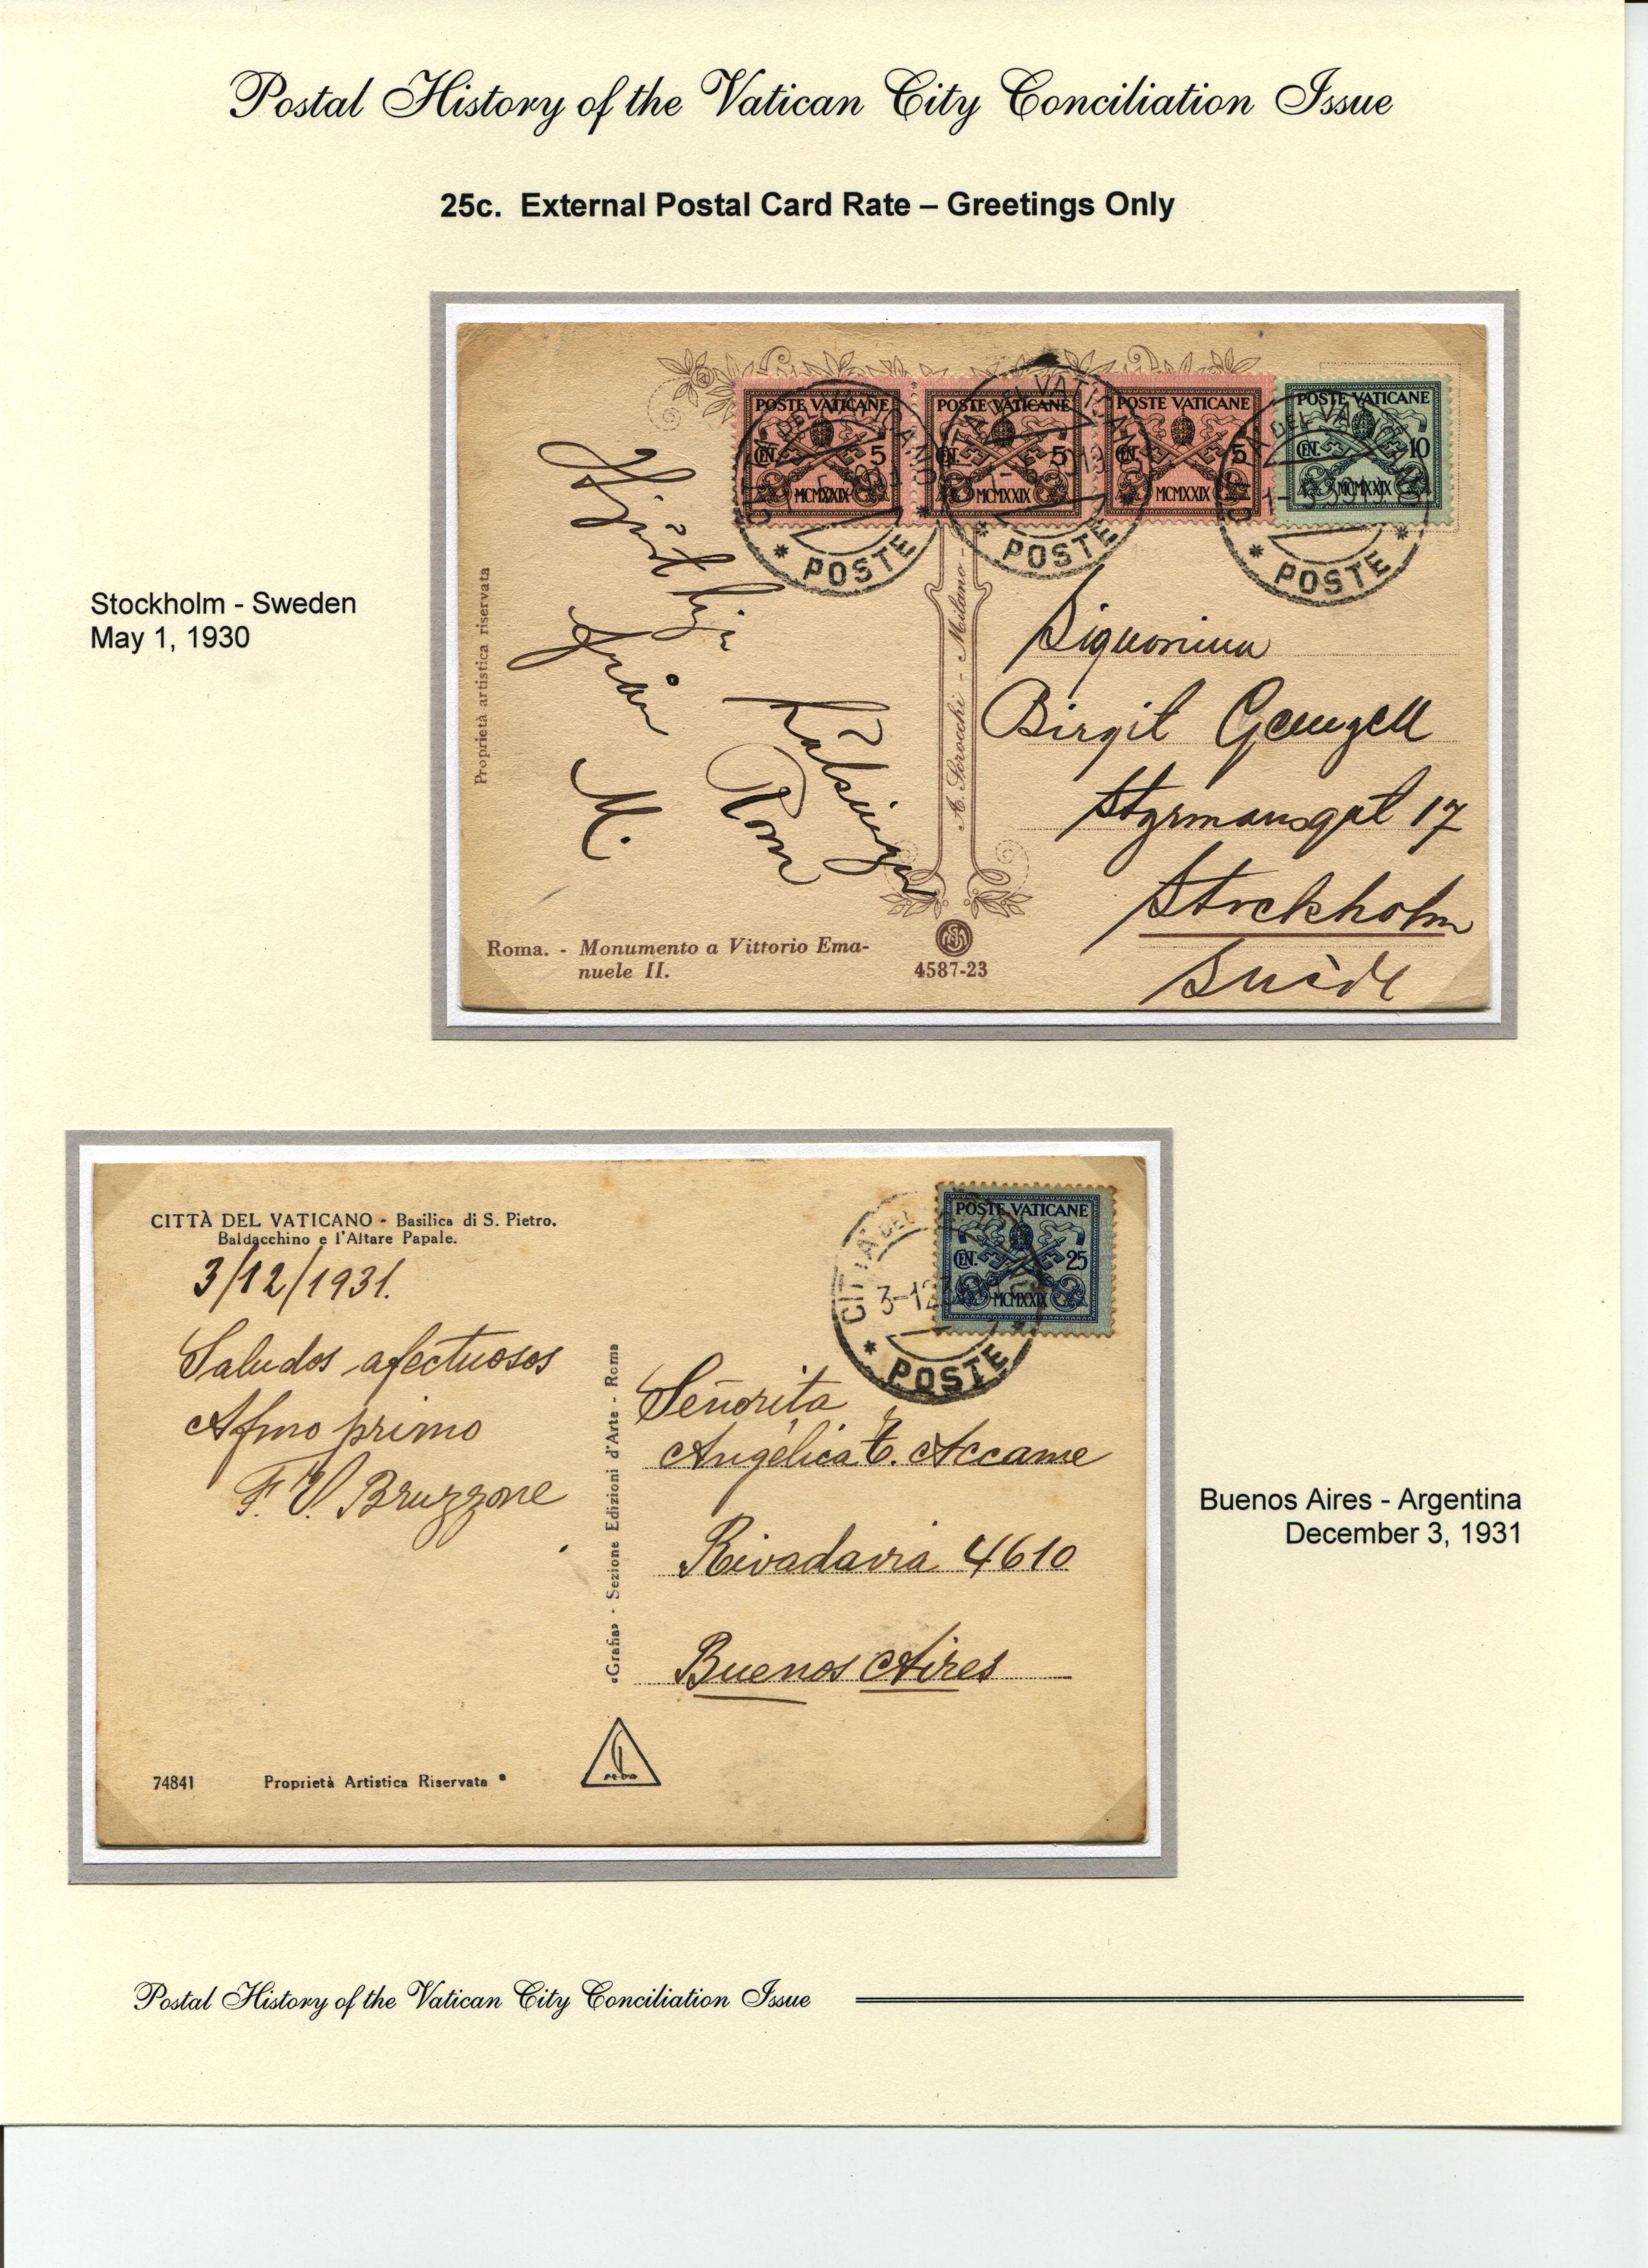 Postal History of the Vatican City Conciliation Issue
25c. External Postal Card Rate – Greetings Only
Stockholm - Sweden
May 1, 1930
POSTE VATICANE
CEN. 5
MCMXXIX
POSTE VATICANE
CEN. 5
MCMXXIX
POSTE VATICANE
CEN. 5
MCMXXIX
POSTE VATICANE
CEN. 10
MCMXXIX
POSTE
CITTÀ DEL VATICANO
POSTE
POSTE
Proprietà artistica riservata
Hjärtliga
hälsningar
från Rom
M.
A. Scrocchi - Milano -
Signorina
Birgit
Styrmansgat 17
Stockholm
Suède
Roma. - Monumento a Vittorio Ema-
nuele II.
4587-23
CITTÀ DEL VATICANO - Basilica di S. Pietro.
Baldacchino e l'Altare Papale.
3/12/1931.
Saludos afectuosos
Afmo primo
F. V. Bruzzone
«Grafia» - Sezione Edizioni d'Arte - Roma
POSTE VATICANE
CEN. 25
MCMXXIX
CITTÀ DEL
3-12
POSTE
Señorita
Angélica E. Accame
Rivadavia 4610
Buenos Aires
74841 Proprietà Artistica Riservata
Buenos Aires - Argentina
December 3, 1931
Postal History of the Vatican City Conciliation Issue